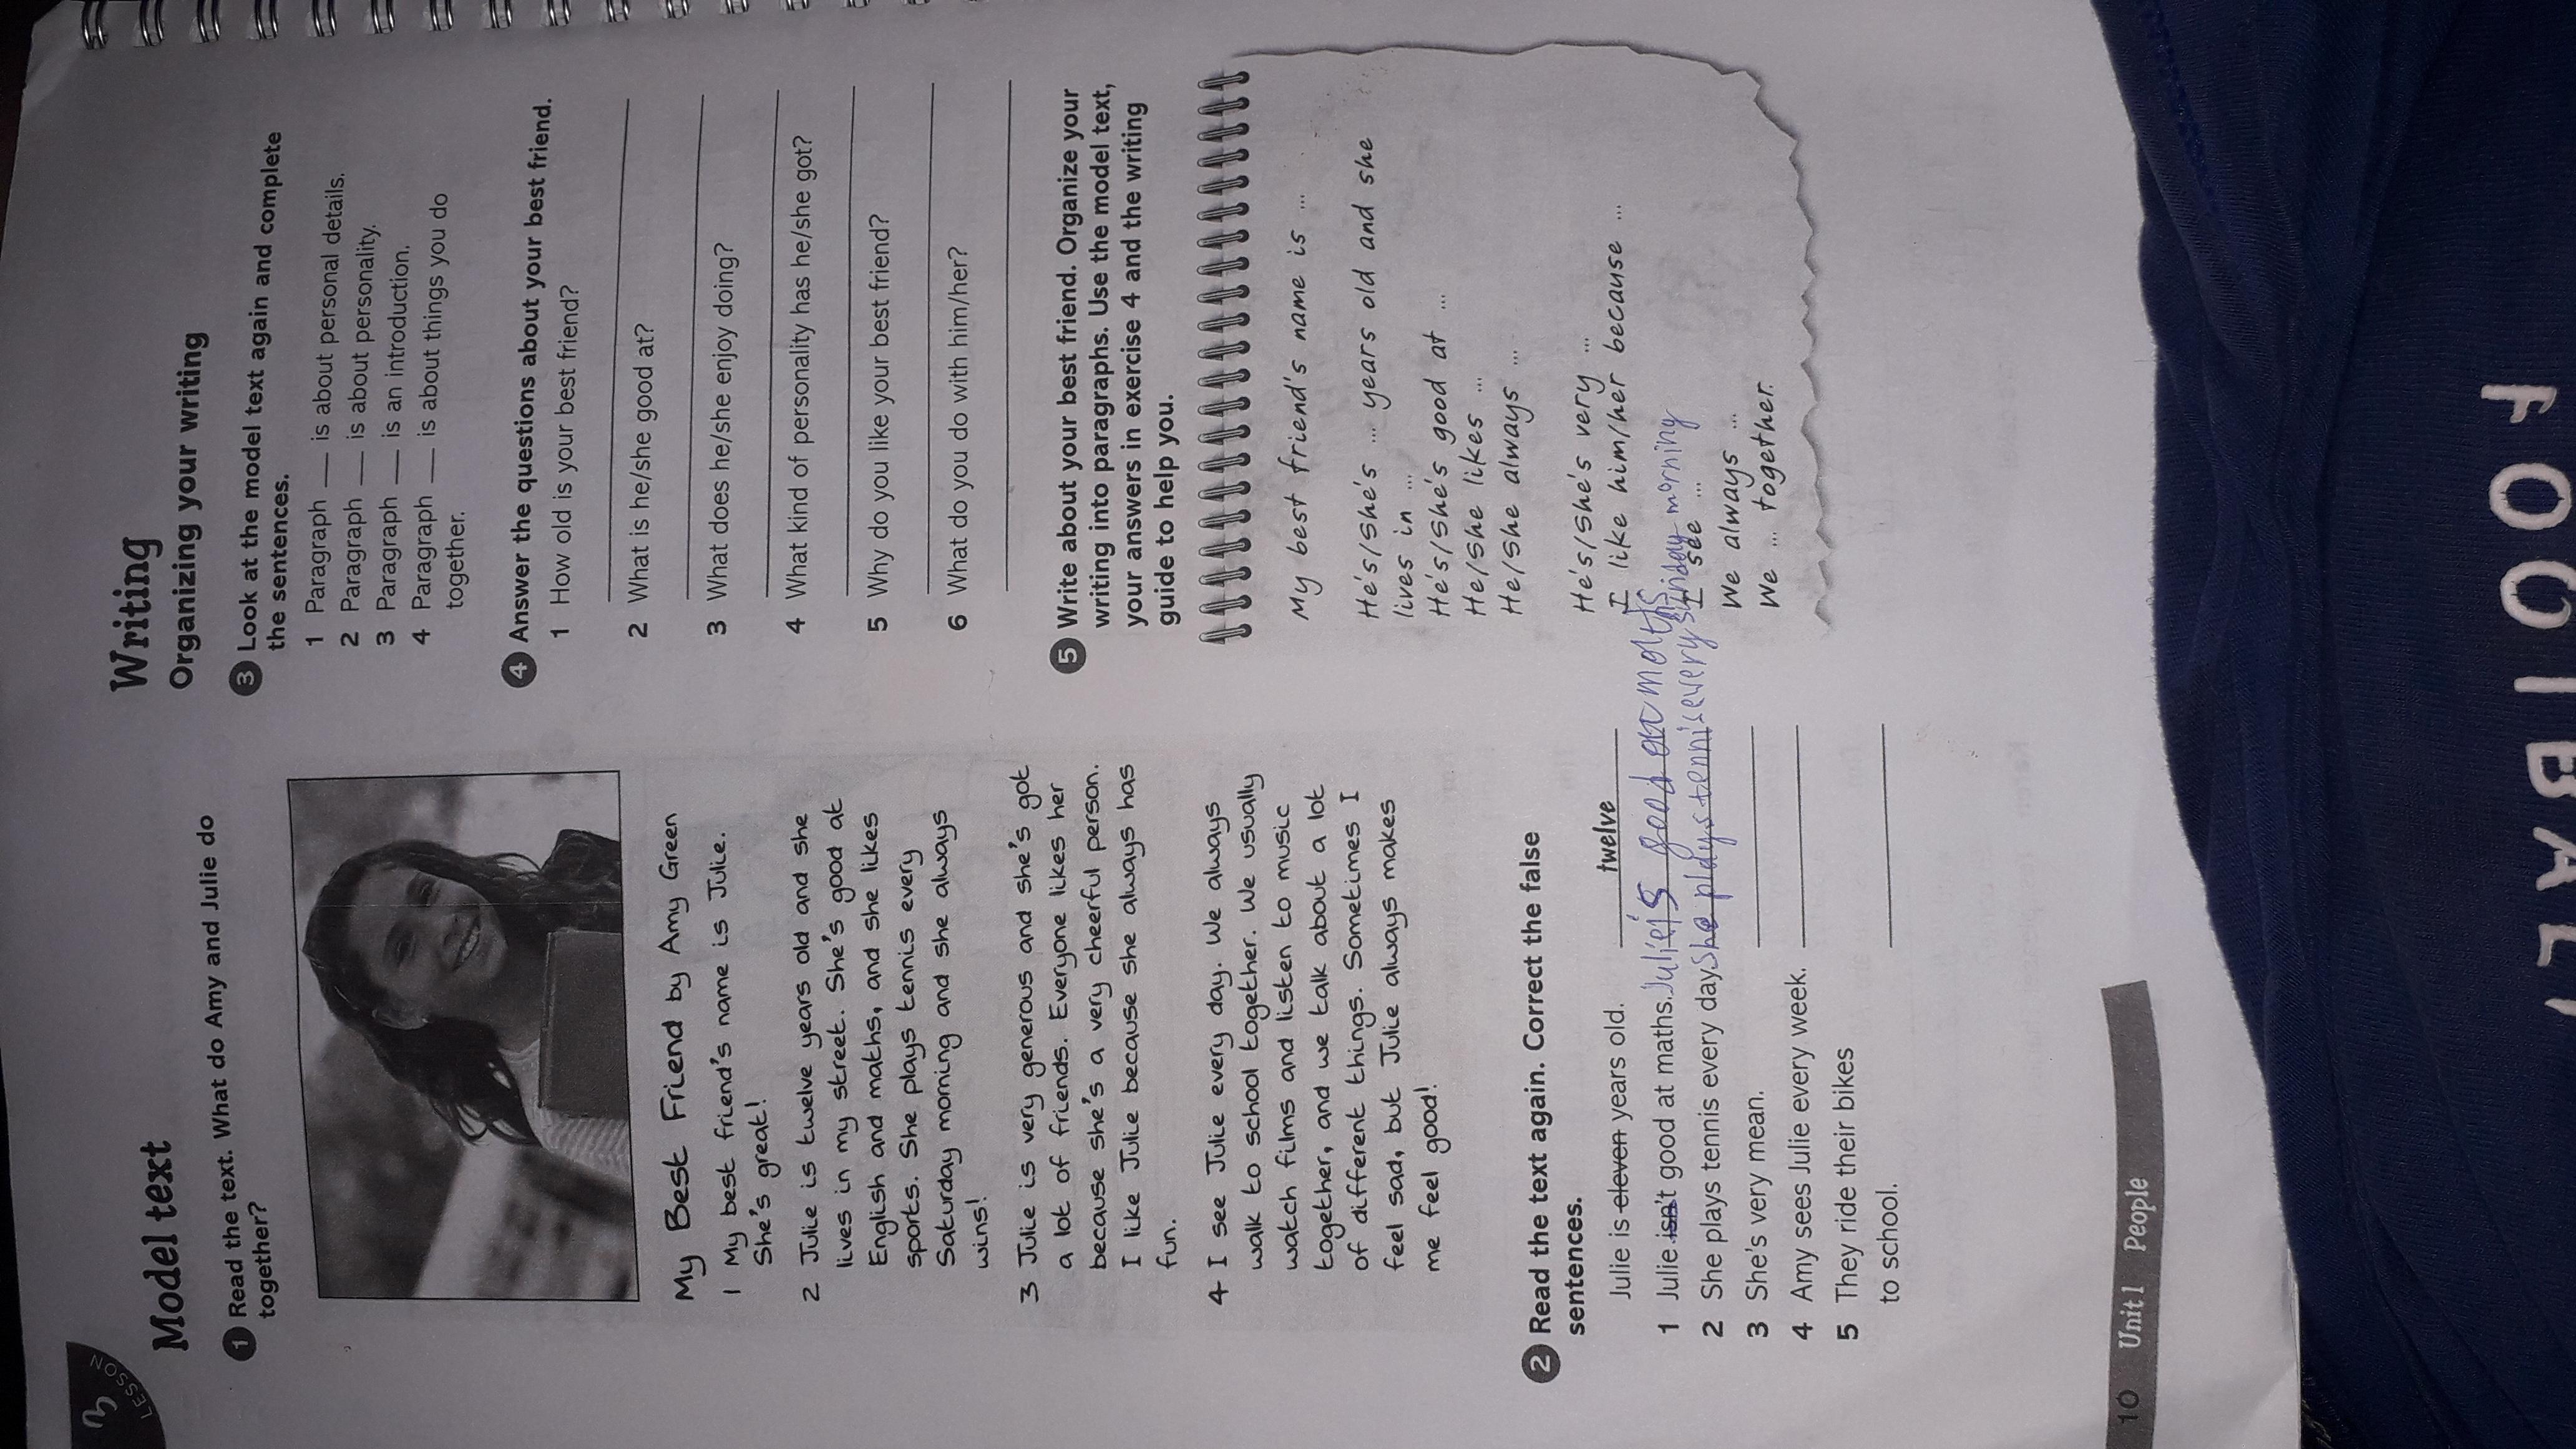 3
LESSON
Model text
1 Read the text. What do Amy and Julie do
together?
My Best Friend by Amy Green
1 My best friend's name is Julie.
She's great!
2 Julie is twelve years old and she
lives in my street. She's good at
English and maths, and she likes
sports. She plays tennis every
Saturday morning and she always
wins!
3 Julie is very generous and she's got
a lot of friends. Everyone likes her
because she's a very cheerful person.
I like Julie because she always has
fun.
4 I see Julie every day. We always
walk to school together. We usually
watch films and listen to music
together, and we talk about a lot
of different things. Sometimes I
feel sad, but Julie always makes
me feel good!
2 Read the text again. Correct the false
sentences.
Julie is eleven years old. twelve
1 Julie isn't good at maths. Julie is good
2 She plays tennis every day. She plays tennis every morning
3 She's very mean.
4 Amy sees Julie every week.
5 They ride their bikes
to school.
Writing
Organizing your writing
3 Look at the model text again and complete
the sentences.
1 Paragraph ___ is about personal details.
2 Paragraph ___ is about personality.
3 Paragraph ___ is an introduction.
4 Paragraph ___ is about things you do
together.
4 Answer the questions about your best friend.
1 How old is your best friend?
2 What is he/she good at?
3 What does he/she enjoy doing?
4 What kind of personality has he/she got?
5 Why do you like your best friend?
6 What do you do with him/her?
5 Write about your best friend. Organize your
writing into paragraphs. Use the model text,
your answers in exercise 4 and the writing
guide to help you.
My best friend's name is ...
He's/She's ... years old and she
lives in ...
He's/She's good at ...
He/She likes ...
He/She always ...
He's/She's very ...
I like him/her because ...
I see ...
We always ...
We ... together.
10 Unit 1 People
FOOTBALL